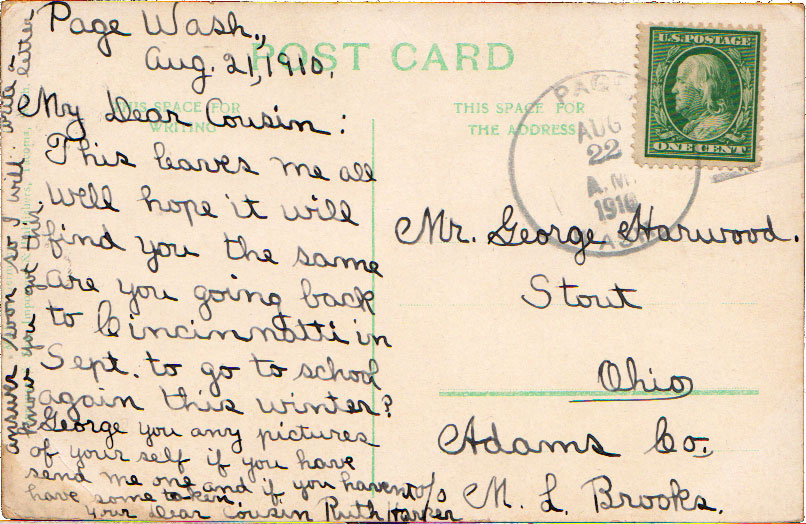 Page Wash.,
Aug. 21, 1910.
POST CARD
THIS SPACE FOR
WRITING
My Dear Cousin:
This leaves me all
well hope it will
find you the same
are you going back
to Cincinnatti in
Sept. to go to school
again this winter?
George you any pictures
of your self if you have
send me one and if you havent
have some taken
Your Dear Cousin Ruth Harker
answer soon so I will
know you got this
letter
THIS SPACE FOR
THE ADDRESS
U.S. POSTAGE
ONE CENT
AUG
22
A.M.
1910
WASH
Mr. George Harwood.
Stout
Ohio
Adams Co.
c/o M. L. Brooks.